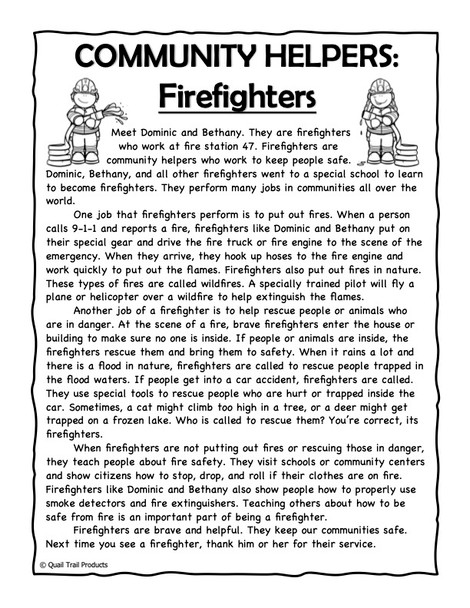 COMMUNITY HELPERS:
Firefighters
Meet Dominic and Bethany. They are firefighters
who work at fire station 47. Firefighters are
community helpers who work to keep people safe.
Dominic, Bethany, and all other firefighters went to a special school to learn
to become firefighters. They perform many jobs in communities all over the
world.
One job that firefighters perform is to put out fires. When a person
calls 9-1-1 and reports a fire, firefighters like Dominic and Bethany put on
their special gear and drive the fire truck or fire engine to the scene of the
emergency. When they arrive, they hook up hoses to the fire engine and
work quickly to put out the flames. Firefighters also put out fires in nature.
These types of fires are called wildfires. A specially trained pilot will fly a
plane or helicopter over a wildfire to help extinguish the flames.
Another job of a firefighter is to help rescue people or animals who
are in danger. At the scene of a fire, brave firefighters enter the house or
building to make sure no one is inside. If people or animals are inside, the
firefighters rescue them and bring them to safety. When it rains a lot and
there is a flood in nature, firefighters are called to rescue people trapped in
the flood waters. If people get into a car accident, firefighters are called.
They use special tools to rescue people who are hurt or trapped inside the
car. Sometimes, a cat might climb too high in a tree, or a deer might get
trapped on a frozen lake. Who is called to rescue them? You're correct, its
firefighters.
When firefighters are not putting out fires or rescuing those in danger,
they teach people about fire safety. They visit schools or community centers
and show citizens how to stop, drop, and roll if their clothes are on fire.
Firefighters like Dominic and Bethany also show people how to properly use
smoke detectors and fire extinguishers. Teaching others about how to be
safe from fire is an important part of being a firefighter.
Firefighters are brave and helpful. They keep our communities safe.
Next time you see a firefighter, thank him or her for their service.
© Quail Trail Products